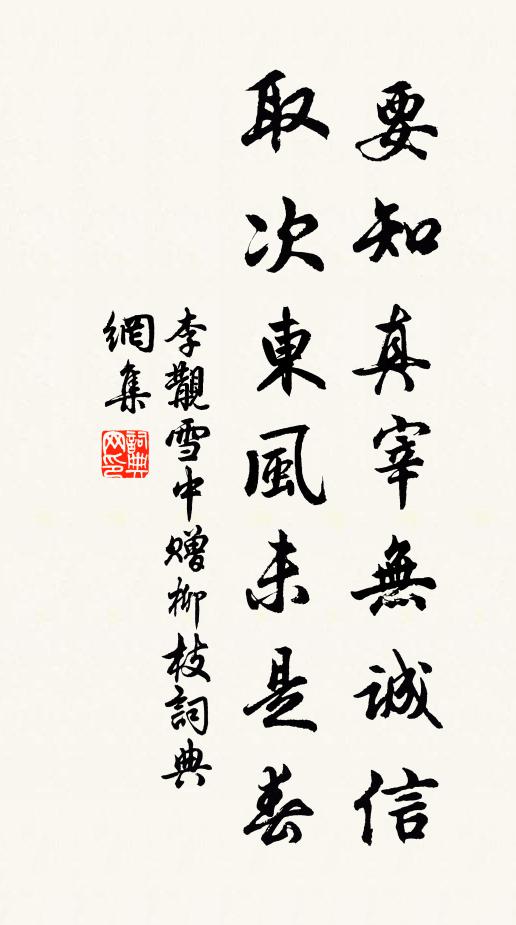 要知真宰無誠信
取次東風未是春
李覯雪中贈柳枝詞典
網集
詞典
网印